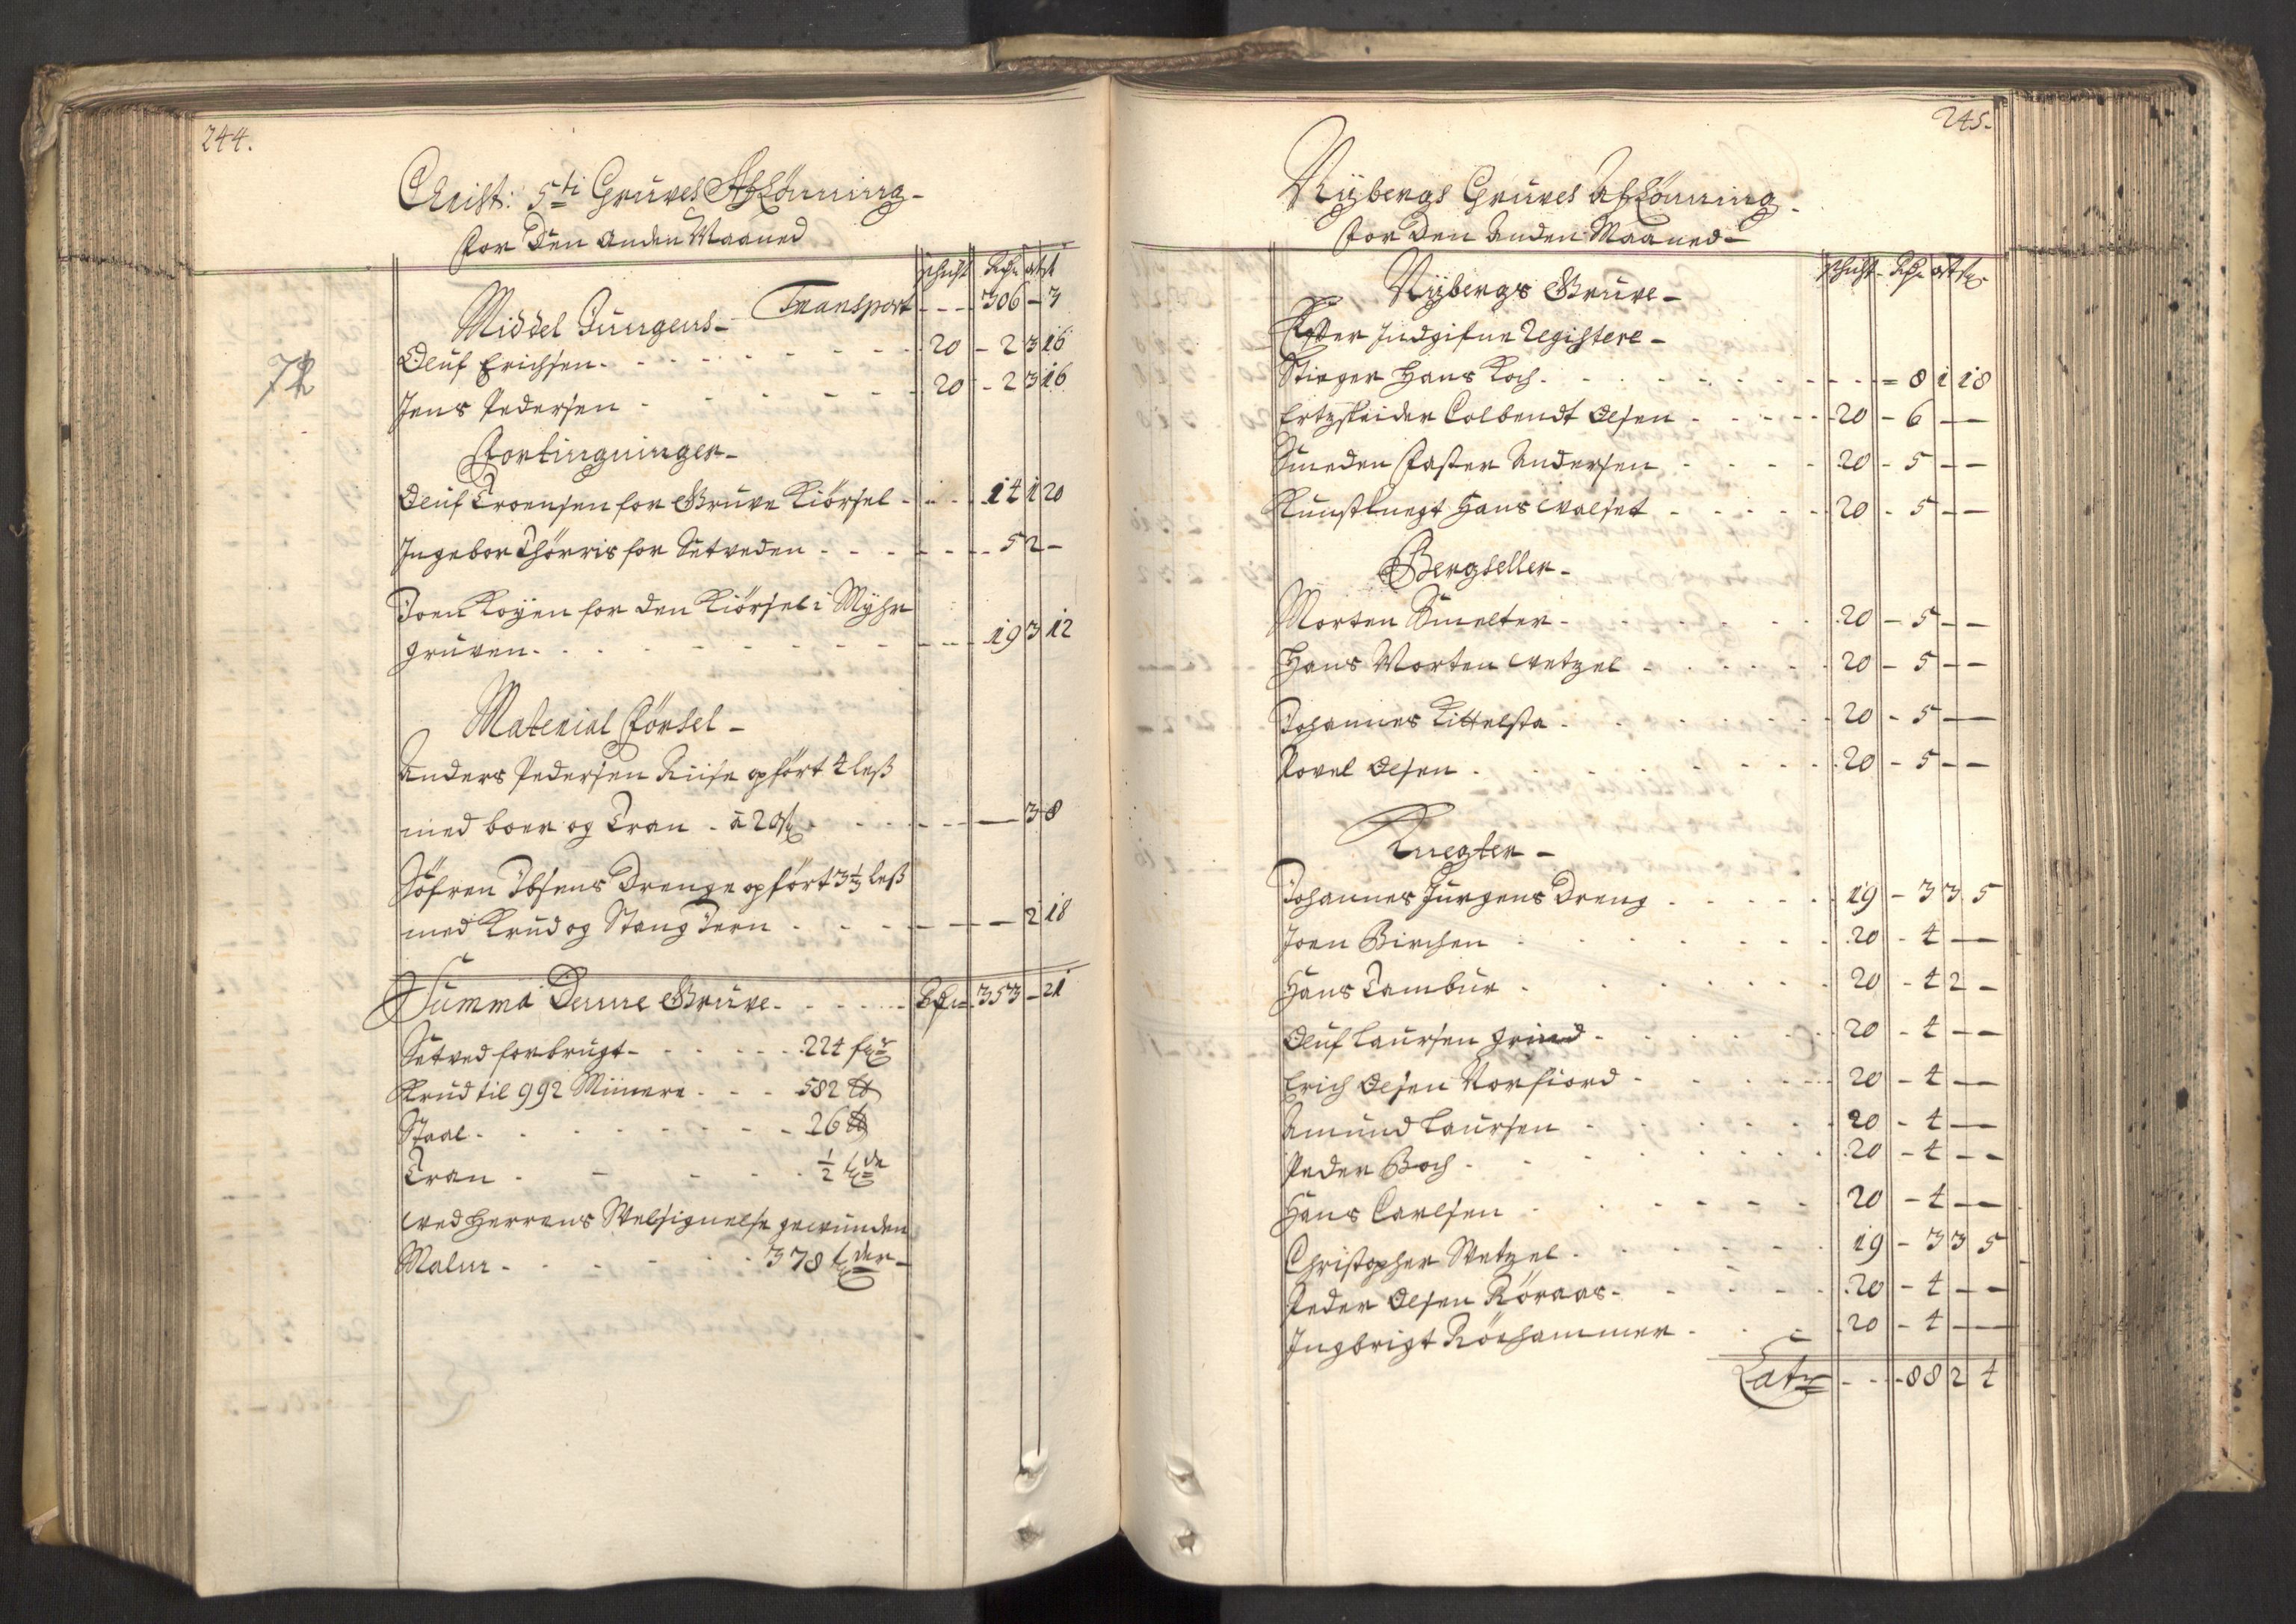 244.
Christ: 5ti Gruves Afflönning
for den anden Maaned
schicht Rdr ort s
Transport - - - 306 - 3
Middel Jungens
Oluf Erichsen - 20 - 2 3 16
Jens Pedersen - 20 - 2 3 16
72
Fortingninger
Oluf Troensen for Gruve Kiörsel - 14 1 20
Ingebor Thorris for Setveden - 5 2 -
Joen Koyen for den Kiörsel i Myhr
gruven - 19 3 12
Material Försel
Anders Pedersen Riise opfört 4 less
med boer og Tran à 20 s - 3 8
Söfren Ibsens Drenge opfört 3 1/3 less
med Krud og Stang Jern - 2 18
Summa Denne Gruve - Rdr 353 - 21
Setved forbrugt - 224 fr
Krud til 992 Minere - 582 lb
Staal - 26 lb
Tran - 1/2 tde
ved Herrens Velsignelse gewunden
Malm - 378 tder
245.
Nybergs Gruves Afflönning
for den anden Maaned
schicht Rdr ort s
Nybergs Gruve
Efter Indgifne Registere
Stiger Hans Koch - 8 1 18
Ertzskeider Colbendt Olsen - 20 - 6 - -
Smeden Faster Andersen - 20 - 5 - -
Kunstknegt Hans Walset - 20 - 5 - -
Bergseller
Morten Smelter - 20 - 5 - -
Hans Morten Wetzel - 20 - 5 - -
Johannes Kittelsta - 20 - 5 - -
Povel Olsen - 20 - 5 - -
Knegter
Johannes Jürgens Dreng - 19 - 3 3 5
Joen Birchen - 20 - 4 - -
Hans Tambur - 20 - 4 2 -
Oluf Laursen Grind - 20 - 4 - -
Erich Olsen Norfiord - 20 - 4 - -
Amund Laursen - 20 - 4 - -
Peder Boch - 20 - 4 - -
Hans Carlsen - 20 - 4 - -
Christopher Wetzel - 19 - 3 3 5
Peder Olsen Röraas - 20 - 4 - -
Ingbrigt Rörhammer - 20 - 4 - -
Latr - - - 88 2 4